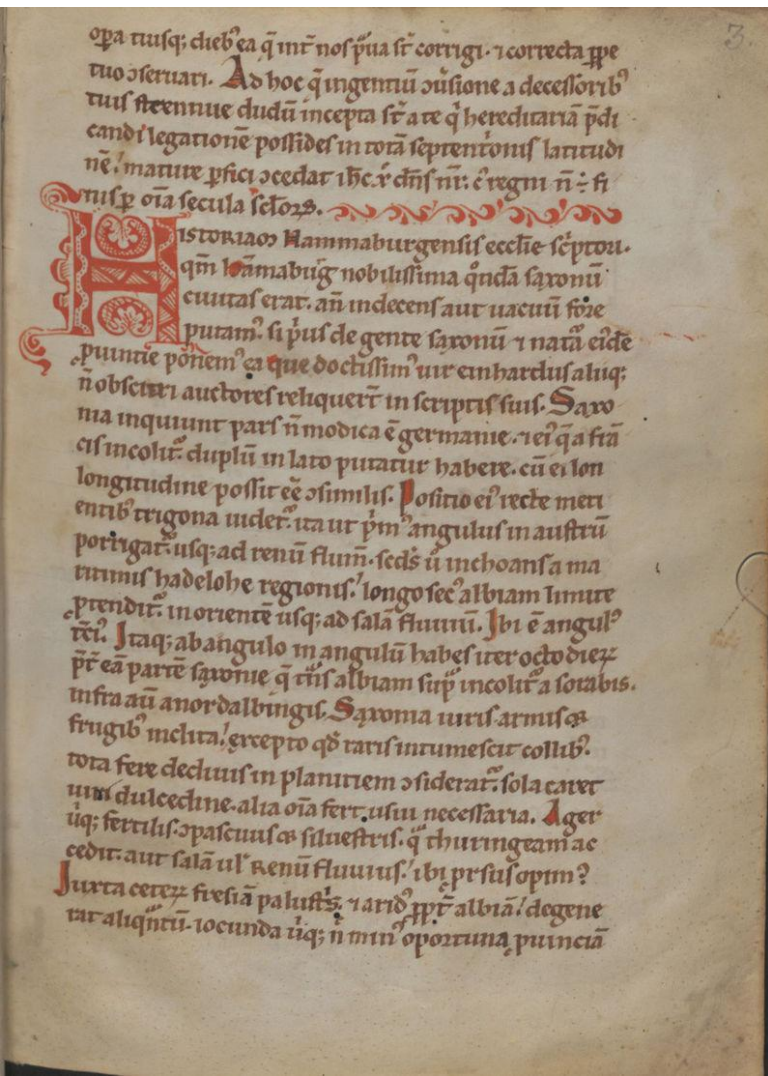 3.
oꝑa tuisq; dieb᷒ ea q̄ int̄ nos p̄ua st̄ corrigi · ⁊ correcta ꝑpe
tuo ɔseruari. Ad hoc q̄ ingentiū ɔuˀsione a decessorib᷒
tuis strennue dudū incepta st̄ a te qⁱ hereditariā p̄di
candi legationē possides in totā septentⁱonis latitudi
nē! mature ꝑfici ɔcedat ihc xp̄ dn̄s nr̄: cˀ regni n̄ ÷ fi
nis ꝑ oīa secula sc̄loꝝ.
HISTORIAM Hammaburgensis eccłie scⁱptori·
qm̄ hāmabūg nobilissima qōndā sꜹxonū
ciuitas erat · nn̄ indecens aut uacuū fore
putam᷒. si pⁱus de gente sꜹxonū ⁊ natā eidē
ꝓuintie ponem᷒ ea que doctissim᷒ uir einhardus aliiq;
n̄ obscuri auctores reliquert̄ in scriptis suis. Saxo
nia inquiunt pars n̄ modica ē germanie · ⁊ ei᷒ q̄ a frā
cis incolit᷒. duplū in lato putatur habere · cū ei lon
longitudine possit eē ɔsimilis. Positio ei᷒ recte meti
entib᷒ trigona uidet᷒. ita ut pⁱm᷒ angulus in austrū
porrigat᷒. usq; ad renū flum̄. scd̄s ū inchoans a ma
ritimis hadelohe regionis! longo sec᷒ albiam limite
ꝓtendit᷒. in orientē usq; ad salā fluuiū. Ibi ē angul᷒
tc̄i᷒. Itaq; ab angulo in angulū habes iter octo dieꝝ
p̄t̄ eā partē sꜹxonie q̄ tn̄s albiam suꝑ incolit᷒ a sorabis.
infra aū a nordalbingis. Saxonia uiris armis &
frugib᷒ inclita! excepto qd̄ raris intumescit collib᷒.
tota fere decliuis in planitiem ɔsiderat᷒. sola caret
uini dulcedine. alia oīa fert. usui necessaria. Ager
ūq; fertilis. ɔpascuus & siluestris. q̄ thuringeam ac
cedit. aut salā uł Renū fluuius! ibi ꝓrsus opim᷒
Iuxta ceteꝝ fresiā palustⁱs. ⁊ arid᷒ ꝓpt̄ albiā! degene
rat aliqn̄tū. iocunda ūq; n̄ min᷒ oportuna ꝓuinciā